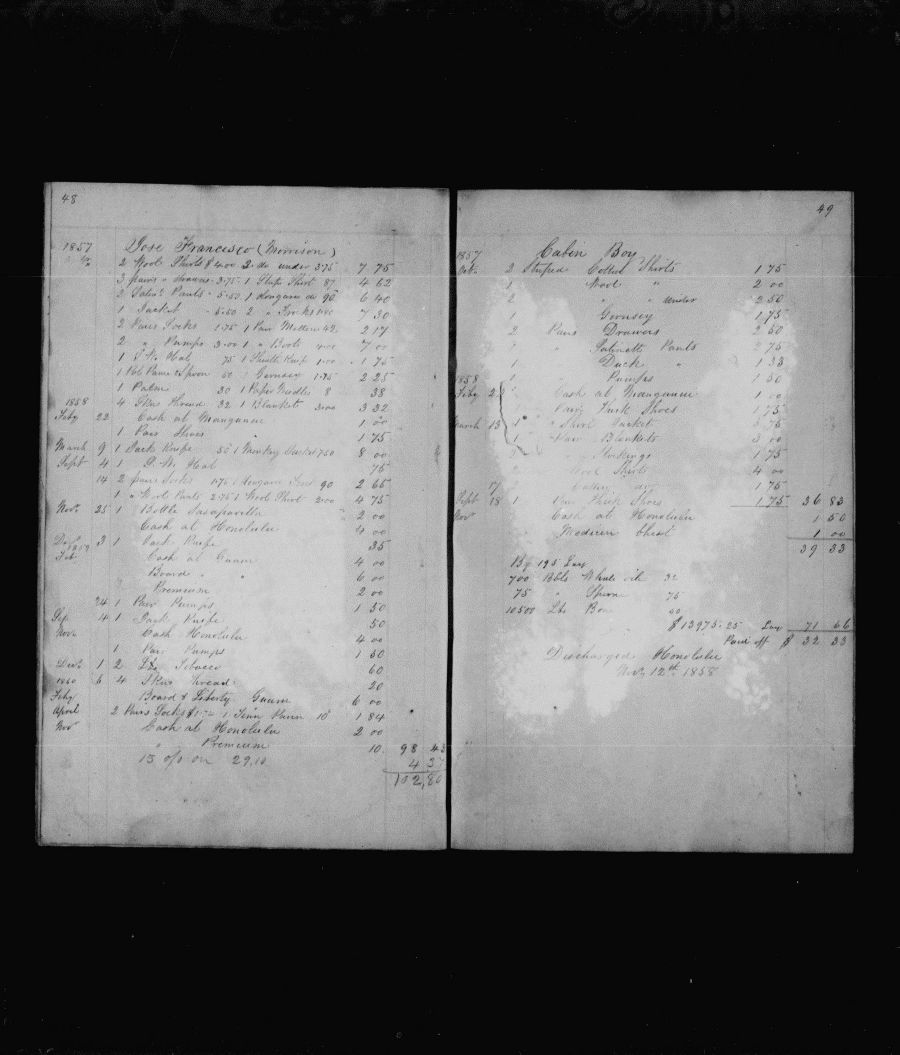 48
1857 Jose Francisco (Morrison)
2 Wool Shirts $ 4.00 2 do under 3.75 7 75
3 pairs " Drawers 3.75 1 Stripe Shirt 87 4 62
2 Satint Pants 5.50 1 dungaree do 90 6 40
1 Jacket 5.50 2 " Frocks 1.80 7 30
2 Pairs Socks 1.75 1 Pair Mittens 42 2 17
2 " Pumps 3.00 1 " Boots 4.00 7 00
1 S.W. Hat 75 1 Sheath Knife 1.00 1 75
1 Pot Pan & Spoon 50 1 Gernsey 1.75 2 25
1 Palm 30 1 Paper Needles 8 38
1858 4 Skns Thread 32 1 Blankets 3.00 3 32
Feby 22 Cash at Manganui 1 00
1 Pair Shoes 1 75
March 9 1 Jack Knife 50 1 Monkey Jacket 7.50 8 00
Sept 4 1 S.W. Hat 75
14 2 pair Socks 1.75 1 dungaree 90 2 65
1 " Wool Pants 2.75 1 Wool Shirt 2.00 4 75
Nov. 25 1 Bottle Sasaparilla 2 00
Cash at Honolulu 4 00
3 1 Jack Knife 35
1859
Feb Cash at Guam 4 00
Board " " 6 00
Premium 2 00
24 1 Pair Pumps 1 50
Sep 4 1 Jack Knife 50
Nov. Cash Honolulu 4 00
1 Pair Pumps 1 50
Dect 1 2 Lbs Tobacco 60
1860 6 4 Skns Thread 20
Feby Board & Liberty Guam 6 00
April 2 Pairs Socks 1 Tinn Pann 10 1 84
Nov Cash at Honolulu 2 00
" Premium 10 98 43
15 o/o on 29.10 4 37
102,80
49
1857 Cabin Boy
Oct. 2 Striped Cotton Shirts 1 75
1 Wool " 2 00
2 " " under 2 50
1 Gernsey 1 75
2 Pairs Drawers 2 50
1 " Satinett Pants 2 75
1 Duck " 1 33
1858 1 Pumps 1 50
Feby Cash at Manganui 1 00
" Pair Thick Shoes 1 75
March 13 " Short Jacket
" Pair Blankets 3 00
" Stockings 1 75
Wool Shirts 4 00
17 1 75
Sept 18 1 Pair Thick Shoes 1 75 36 83
Nov Cash at Honolulu 1 50
" Medicin Chest 1 00
39 33
By 195 Lay
700 Bbls Whale oil 32
75 " Sperm 75
10500 Lbs Bone
$ 13975.25 Lay 71 66
Paid off $ 32 33
Discharged Honolulu
Nov 12th 1858